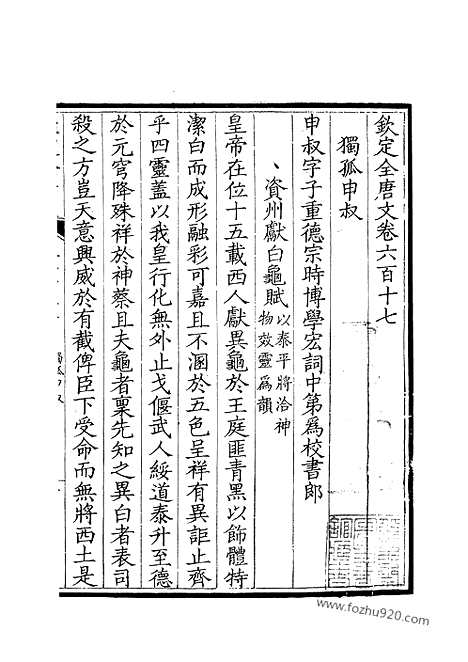 欽定全唐文卷六百十七
獨孤申叔
申叔字子重德宗時博學宏詞中第爲校書郎
、資州獻白龜賦以泰平將洽神物效靈爲韻
皇帝在位十五載西人獻異龜於王庭匪青黑以飾體特
潔白而成形融彩可嘉且不溷於五色呈祥有異詎止齊
乎四靈蓋以我皇行化無外止戈偃武人綏道泰升至德
於元穹降殊祥於神蔡且夫龜者稟先知之異白者表司
殺之方豈天意興威於有截俾臣下受命而無將西土是
www.fozhu920.com